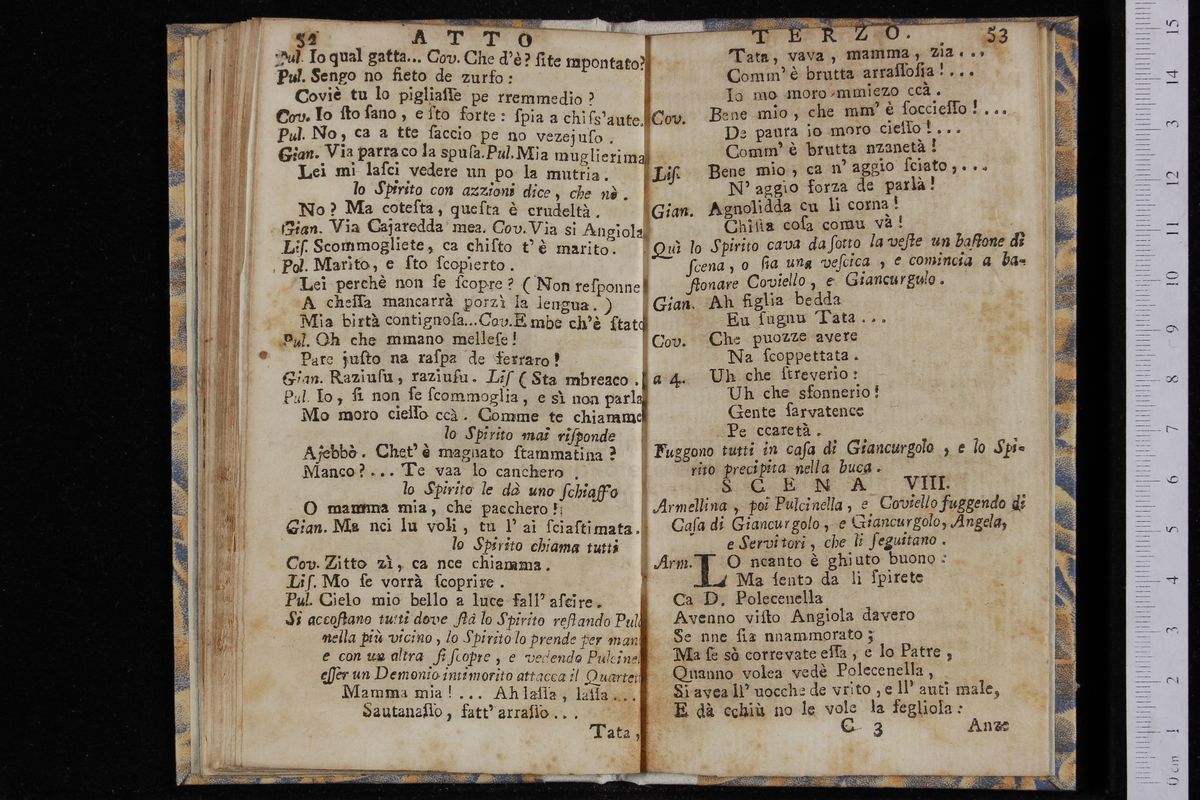 52 ATTO
Pul. Io qual gatta... Cov. Che d'è? ſite mpontato?
Pul. Sengo no fieto de zurfo:
Coviè tu lo pigliaſſe pe rremmedio?
Cov. Io ſto ſano, e ſto forte: ſpia a chiſs'aute.
Pul. No, ca a tte faccio pe no vezejuſo.
Gian. Via parra co la spuſa. Pul. Mia muglierima
Lei mi laſci vedere un po la mutria.
lo Spirito con azzioni dice, che nò.
No? Ma coteſta, queſta è crudeltà.
Gian. Via Cajaredda mea. Cov. Via si Angiola
Liſ. Scommogliete, ca chiſto t'è marito.
Pol. Marito, e ſto ſcopierto.
Lei perchè non ſe ſcopre? (Non reſponne
A cheſſa mancarrà porzì la lengua.)
Mia birtà contignoſa... Cov. E mbe ch'è ſtato
Pul. Oh che mmano melleſe!
Pare juſto na raſpa de ferraro!
Gian. Raziuſu, raziuſu. Liſ (Sta mbreaco.
Pul. Io, ſi non ſe ſcommoglia, e sì non parla
Mo moro cieſſo ccà. Comme te chiamme
lo Spirito mai riſponde
Ajebbò. Chet'è magnato ſtammatina?
Manco?... Te vaa lo canchero.
lo Spirito le dà uno ſchiaffo
O mamma mia, che pacchero!
Gian. Ma nci lu voli, tu l'ai ſciaſtimata.
lo Spirito chiama tutti
Cov. Zitto zì, ca nce chiamma.
Liſ. Mo ſe vorrà ſcoprire.
Pul. Cielo mio bello a luce fall' aſcire.
Si accoſtano tutti dove ſtà lo Spirito reſtando Pulc
nella più vicino, lo Spirito lo prende per man
e con un altra ſi ſcopre, e vedendo Pulcine
eſſer un Demonio intimorito attacca il Quartet
Mamma mia!... Ah laſſa, laſſa...
Sautanaſſo, fatt' arraſſo...
Tata,
TERZO. 53
Tata, vava, mamma, zia...
Comm' è brutta arraſſoſia!...
Io mo moro mmiezo ccà.
Cov. Bene mio, che mm' è ſoccieſſo!...
De paura io moro cieſſo!...
Comm' è brutta nzanetà!
Liſ. Bene mio, ca n' aggio ſciato,...
N' aggio forza de parlà!
Gian. Agnolidda cu li corna!
Chiſta coſa comu và!
Quì lo Spirito cava da ſotto la veſte un baſtone di
ſcena, o ſia una veſcica, e comincia a ba-
ſtonare Coviello, e Giancurgulo.
Gian. Ah figlia bedda
Eu ſugnu Tata...
Cov. Che puozze avere
Na ſcoppettata.
a 4. Uh che ſtreverio:
Uh che sfonnerio!
Gente ſarvatence
Pe ccaretà.
Fuggono tutti in caſa di Giancurgolo, e lo Spi-
rito precipita nella buca.
SCENA VIII.
Armellina, poi Pulcinella, e Coviello fuggendo di
Caſa di Giancurgolo, e Giancurgolo, Angela,
e Servitori, che li ſeguitano.
Arm. LO ncanto è ghiuto buono:
Ma ſento da li ſpirete
Ca D. Polecenella
Avenno viſto Angiola davero
Se nne ſia nnammorato;
Ma ſe sò correvate eſſa, e lo Patre,
Quanno volea vedè Polecenella,
Si avea ll' uocche de vrito, e ll' auti male,
E dà cchiù no le vole la ſegliola:
C 3 Anze